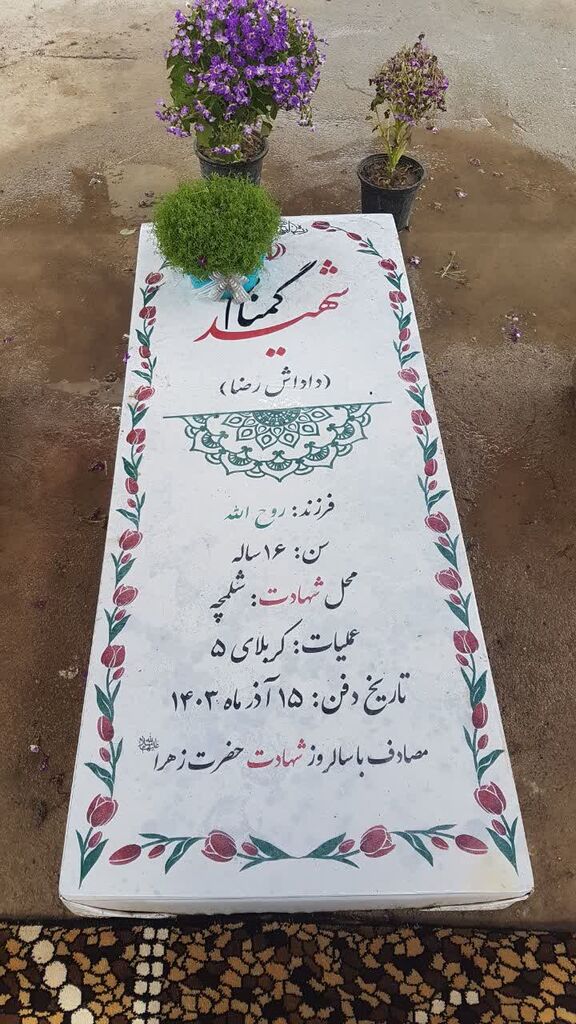 شهید گمنام
(داداش رضا)
فرزند: روح الله
سن: ۱۶ ساله
محل شهادت: شلمچه
عملیات: کربلای ۵
تاریخ دفن: ۱۵ آذر ماه ۱۴۰۳
مصادف با سالروز شهادت حضرت زهرا